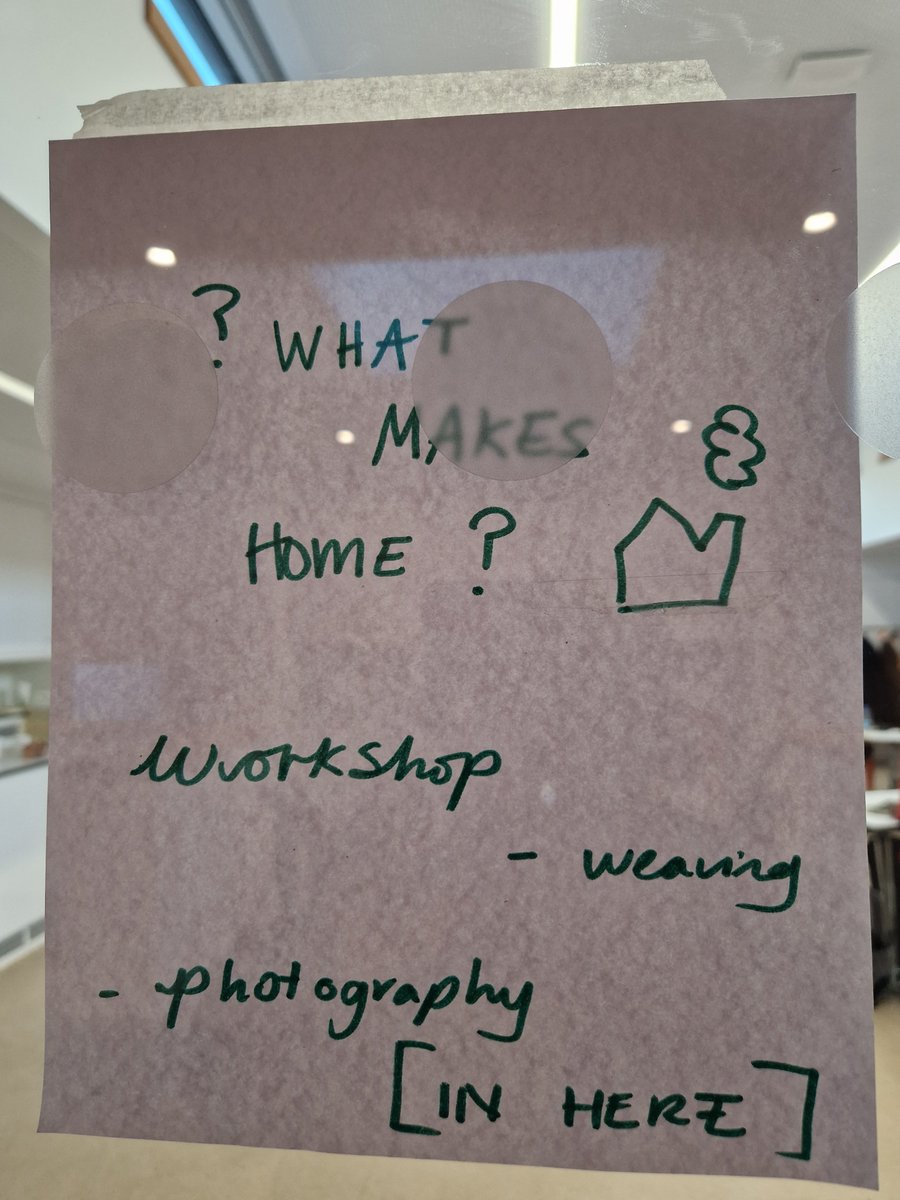 ? WHAT
MAKES
HOME ?
Workshop
- weaving
- photography
[IN HERE]